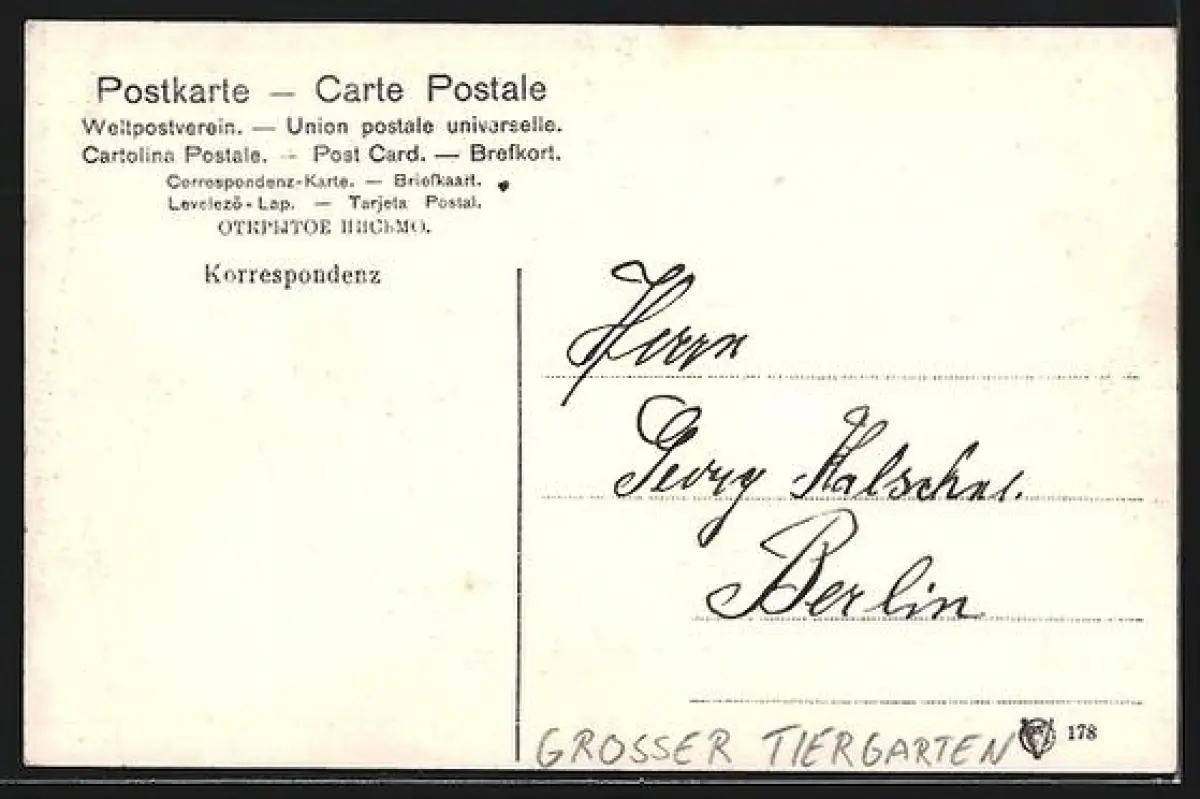 Postkarte — Carte Postale
Weltpostverein. — Union postale universelle.
Cartolina Postale. — Post Card. — Brefkort.
Correspondenz-Karte. — Briefkaart.
Levelező-Lap. — Tarjeta Postal.
ОТКРЫТОЕ ПИСЬМО.
Korrespondenz
Herrn
Georg
Berlin
GROSSER TIERGARTEN
178